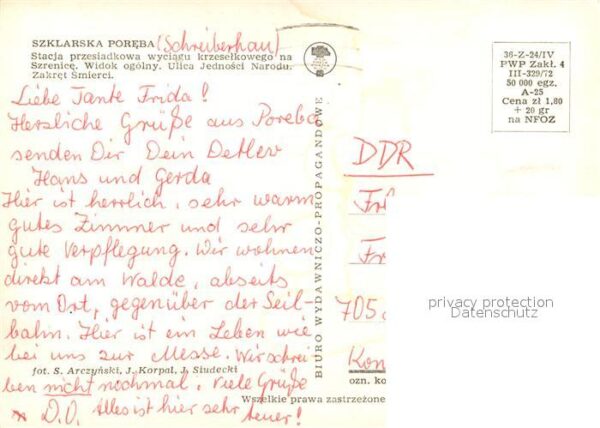 SZKLARSKA PORĘBA (Schreiberhau)
Stacja przesiadkowa wyciągu krzesełkowego na
Szrenicę. Widok ogólny. Ulica Jedności Narodu.
Zakręt Śmierci.
Liebe Tante Frida!
Herzliche Grüße aus Poreba
senden Dir Dein Detlev
Hans und Gerda
Hier ist herrlich, sehr warm
gutes Zimmer und sehr
gute Verpflegung. Wir wohnen
direkt am Walde, abseits
vom Ort, gegenüber der Seil-
bahn. Hier ist ein Leben wie
bei uns zur Messe. Wir schrei
fot. S. Arczyński, J. Korpal, J. Siudecki
ben nicht nochmal. Viele Grüße
D.O. Alles ist hier sehr teuer!
Wszelkie prawa zastrzeżone
BIURO WYDAWNICZO-PROPAGANDOWE
36-Z-24/IV
PWP Zakł. 4
III-329/72
50 000 egz.
A-25
Cena zł 1,80
+ 20 gr
na NFOZ
DDR
Fr
705
Kon
ozn. ko
privacy protection
Datenschutz